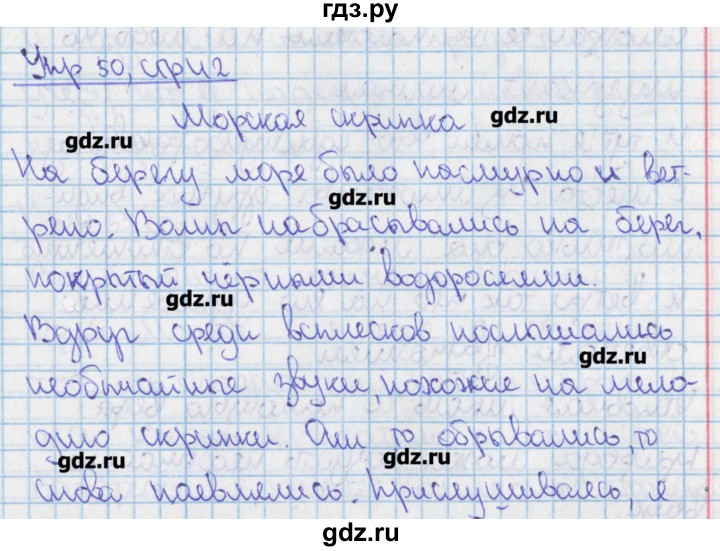 гдз.ру
Упр 50, стр 12
Морская скрипка
gdz.ru
gdz.ru
На берегу моря было пасмурно и вет-
gdz.ru
рено. Волны набрасывались на берег,
покрытый чёрными водорослями.
gdz.ru
Вдруг среди всплесков послышались
gdz.ru
необычайные звуки, похожие на мело-
дию скрипки. Они то обрывались, то
gdz.ru
gdz.ru
снова появлялись. Прислушиваясь, я
gdz.ru